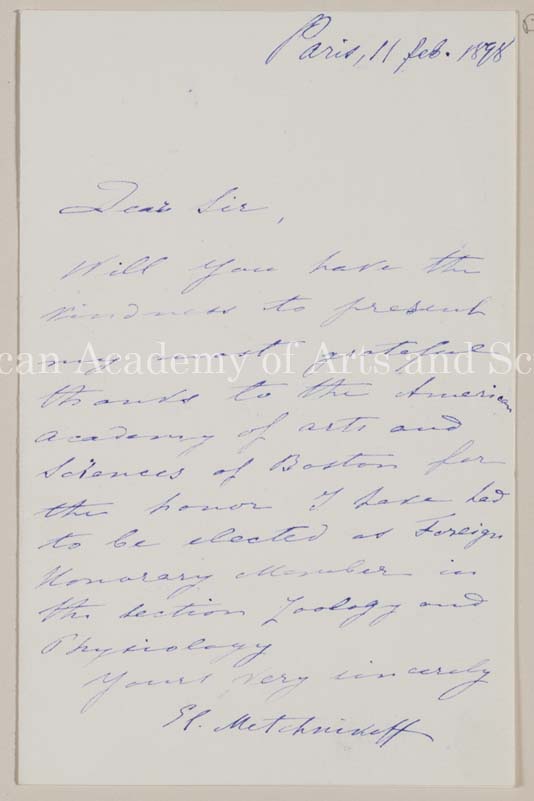 Paris, 11 feb. 1898
Dear Sir,
Will you have the
kindness to present
my most grateful
can Academy of Arts and Sc
thanks to the American
academy of arts and
Sciences of Boston for
the honor I have had
to be elected as Foreign
Honorary Member in
the section Zoology and
Physiology
Yours very sincerely
El. Metchnikoff